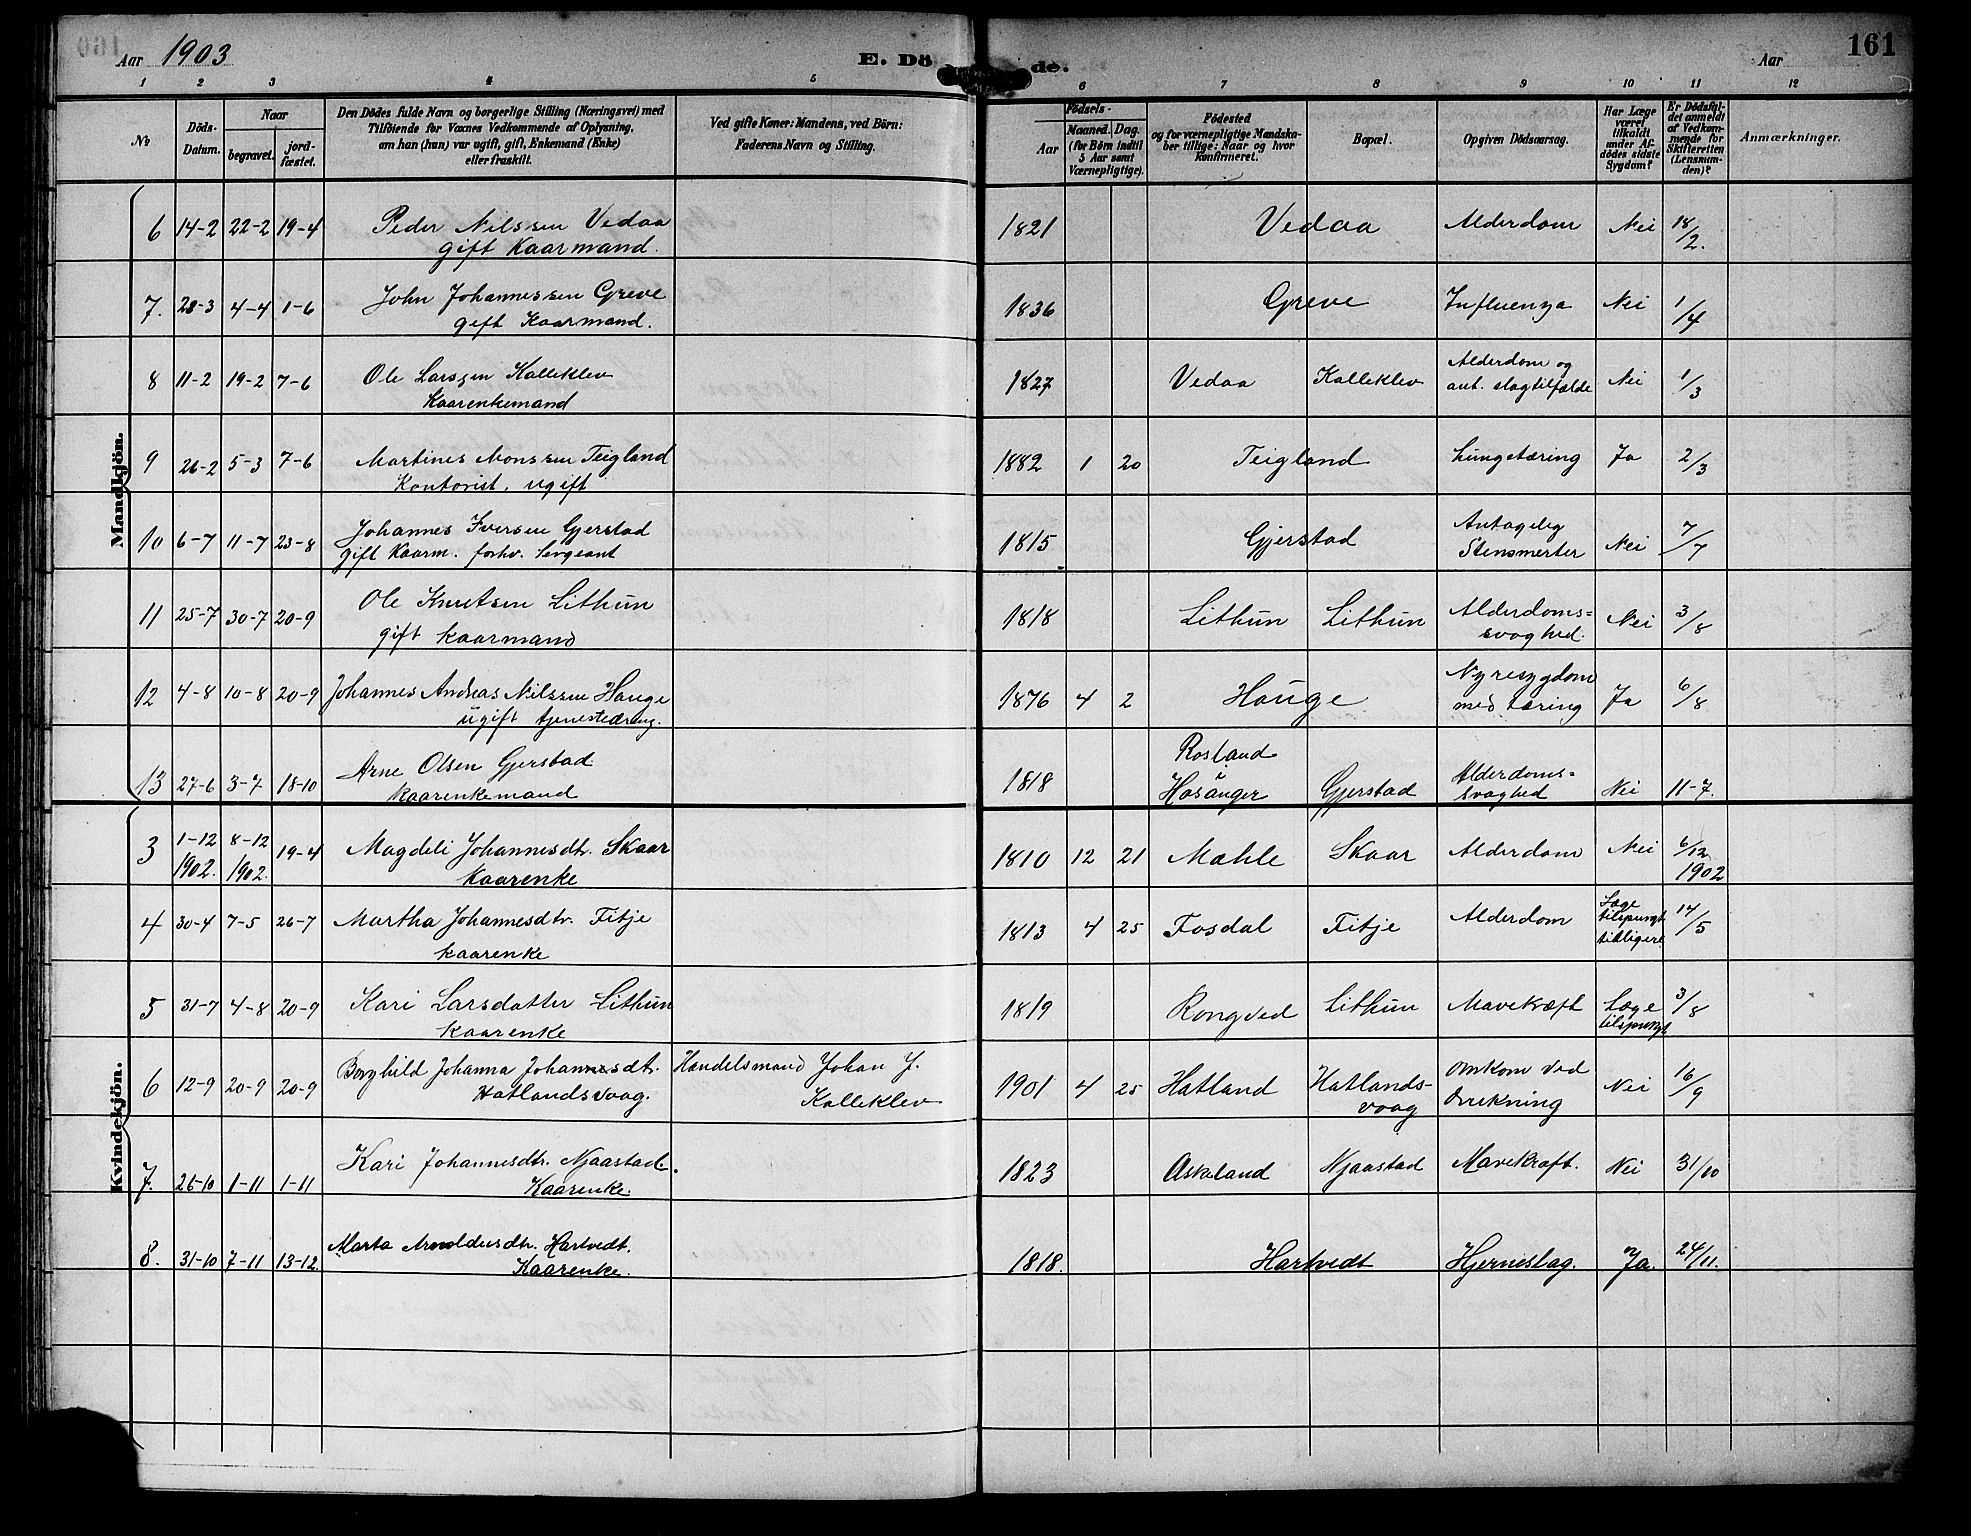 Aar 1903 E. Döde. Aar 161
1 2 3 4 5 6 7 8 9 10 11 12
№ Döds-Datum. Naar begravet. jord-fæstet. Den Dödes fulde Navn og borgerlige Stilling (Næringsvei) med Tilföiende for Voxnes Vedkommende af Oplysning, om han (hun) var ugift, gift, Enkemand (Enke) eller fraskilt. Ved gifte Koner: Mandens, ved Börn: Faderens Navn og Stilling. Födsels- Aar Maaned. Dag. (for Börn indtil 5 Aar samt Værnepligtige). Födested og for værnepligtige Mandskaber tillige: Naar og hvor konfirmeret. Bopæl. Opgiven Dödsaarsag. Har Læge været tilkaldt under Afdödes sidste Sygdom? Er Dödsfaldet anmeldt af Vedkommende for Skifteretten (Lensmanden)? Anmærkninger.
Mandkjön.
6 14-2 22-2 19-4 Peder Nilssen Vedaa 1821 Vedaa Alderdom Nei 18/2.
gift Kaarmand.
7. 28-3 4-4 1-6 John Johannessen Greve 1836 Greve Influenza Nei 1/4
gift Kaarmand.
8 11-2 19-2 7-6 Ole Larssen Kalleklev 1827 Vedaa Kalleklev Alderdom og Nei 1/3
Kaarenkemand ant. slagtilfælde
9 26-2 5-3 7-6 Martines Monssen Teigland 1882 1 20 Teigland Lungetæring Ja 2/3
Kontorist. ugift
10 6-7 11-7 23-8 Johannes Iversen Gjerstad 1815 Gjerstad Antagelig Nei 7/7
gift Kaarm. forhv. Sergeant Stensmerter
11 25-7 30-7 20-9 Ole Knutsen Lithun 1818 Lithun Lithun Alderdoms= Nei 3/8
gift kaarmand svaghed.
12 4-8 10-8 20-9 Johannes Andreas Nilssen Hauge 1876 4 2 Hauge Nyresygdom Ja 6/8
ugift tjenestedreng. med tæring
13 27-6 3-7 18-10 Arne Olsen Gjerstad 1818 Rosland Gjerstad Alderdoms= Nei 11-7.
Kaarenkemand Hosanger svaghed
Kvindekjön.
3 1-12 8-12 19-4 Magdeli Johannesdtr. Skaar 1810 12 21 Mæhle Skaar Alderdom Nei 6/12
1902. 1902. Kaarenke 1902
4 30-4 7-5 26-7 Martha Johannesdtr. Fitje 1813 4 25 Fosdal Fitje Alderdom Læge tilspurgt tidligere 14/5
kaarenke
5 31-7 4-8 20-9 Kari Larsdatter Lithun 1819 Rongved Lithun Mavekræft Læge tilspurgt 3/8
kaarenke
6 12-9 20-9 20-9 Borghild Johanna Johannesdtr. Handelsmand Johan J. 1901 4 25 Hatland Hatlands- Omkom ved Nei 16/9
Hatlandsvaag. Kalleklev vaag Drukning
7. 26-10 1-11 1-11 Kari Johannesdtr. Njaastad. 1823 Askeland Njaastad Mavekræft. Nei 31/10
Kaarenke.
8. 31-10 7-11 13-12. Marta Arnoldusdtr. Hartvedt. 1818. Hartvedt Hjerneslag. Ja. 24/11.
Kaarenke.